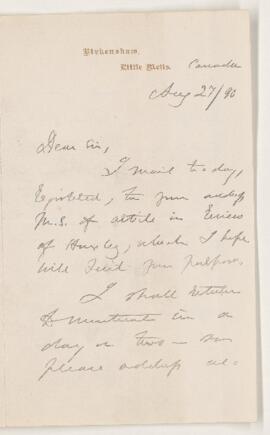 Birkenshaw,
Little Metis. Canada
Aug 27/90
Dear Sir,
I mail to day,
to your address
M.S. of article in
of Huxley, which I hope
will suit your purpose.
I shall return
to Montreal in a
day or two — so
please address ac-